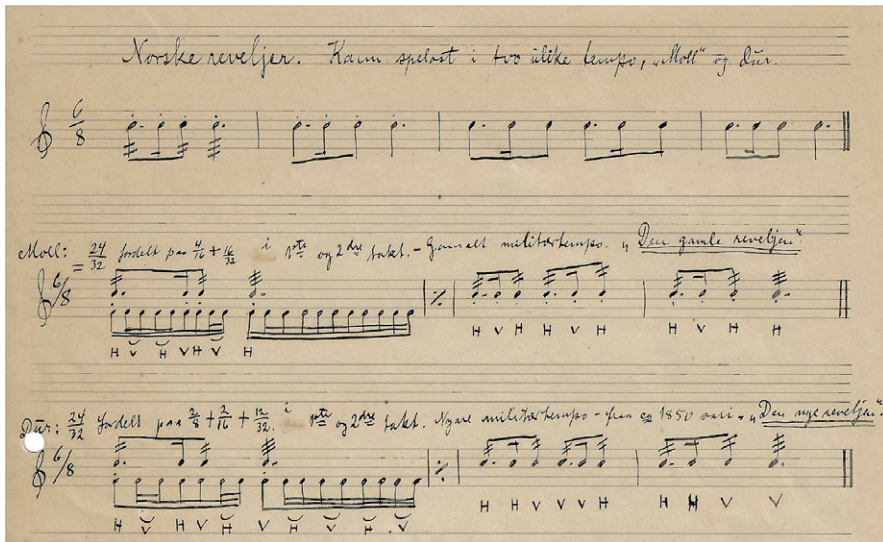 Norske reveljer. Kann spelast i tvo ulike tempo, „Moll" og Dur.
6/8
Moll: 24/32 fordelt paa 4/16 + 16/32 i 1ste og 2dre takt. - Gamalt militærtempo. „Den gamle reveljen".
= 6/8
H V H V H V H
H V H H V H H V H H
Dur: 24/32 fordelt paa 2/8 + 2/16 + 12/32. i 1ste og 2dre takt. Nyare militærtempo - fraa ca 1850 „Den nye reveljen".
6/8
H V H V H V H V H V
H H V V V H H H V V